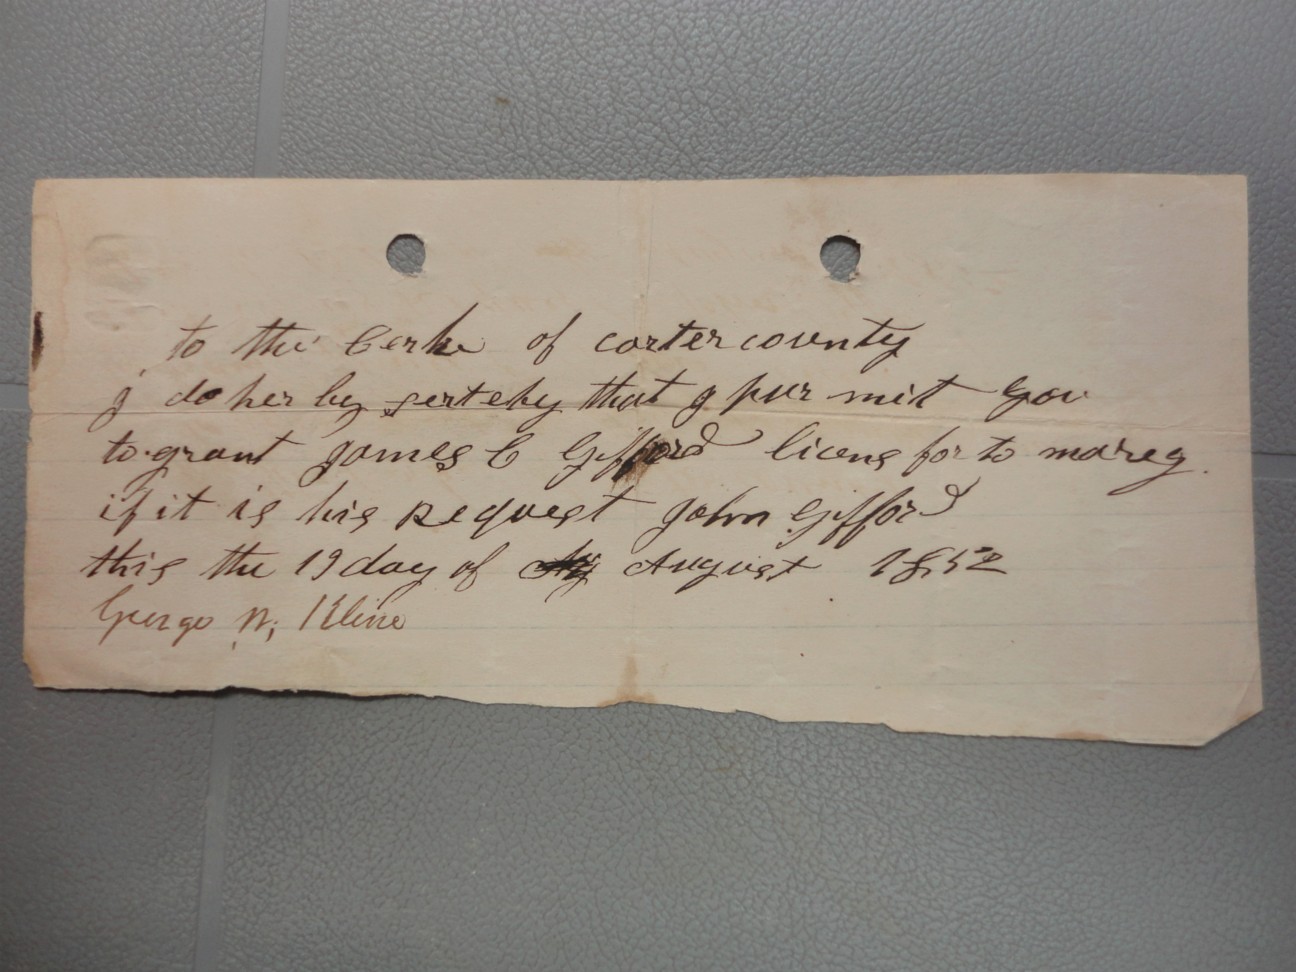 to the Cerke of carter county
J do her by serteby that J pur mit you
to grant James C Gifford licens for to marey.
if it is his Request John Gifford
this the 19 day of August 1852
George W, Kline